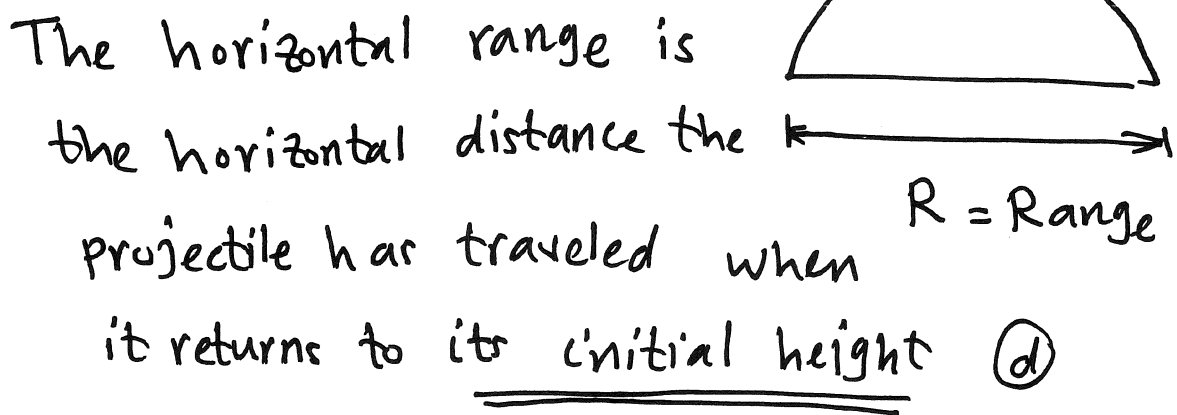 The horizontal range is
the horizontal distance the
R = Range
projectile has traveled when
it returns to its initial height ⓓ